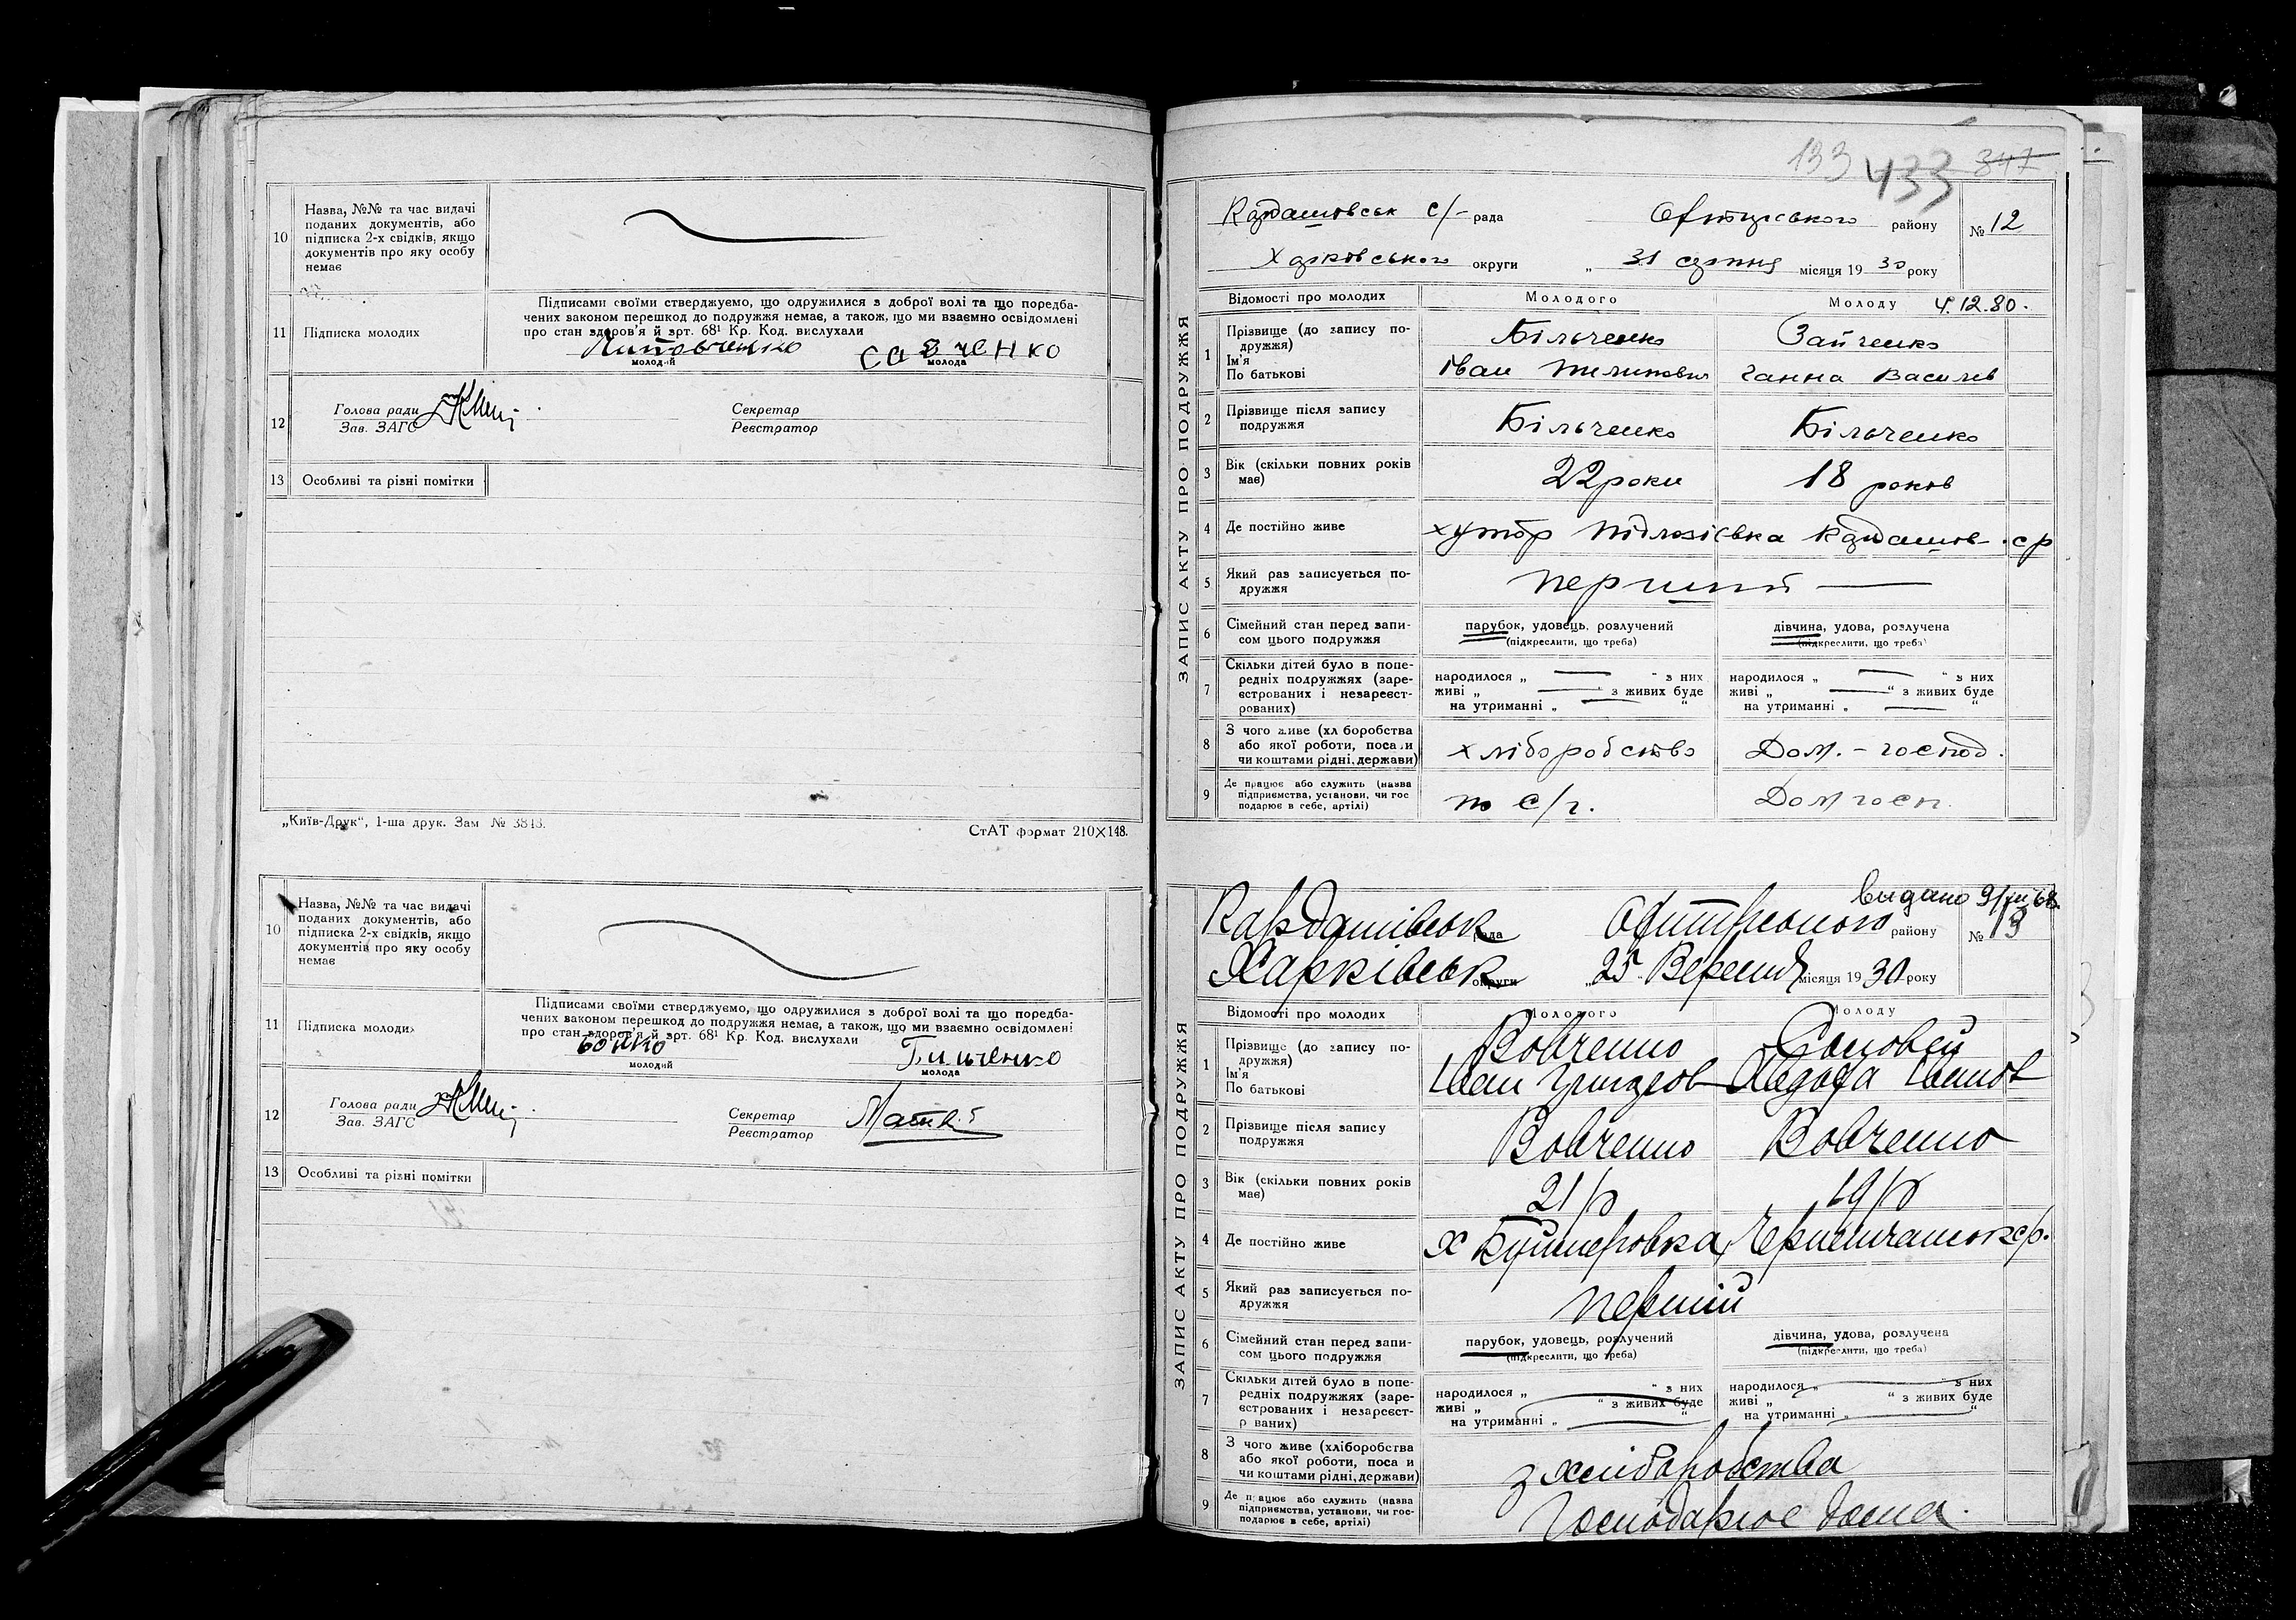 10
Назва, №№ та час видачі
поданих документів, або
підписка 2-х свідків, якщо
документів про яку особу
немає
11 Підписка молодих
Підписами своїми стверджуємо, що одружилися з доброї волі та що поредба-
чених законом перешкод до подружжя немає, а також, що ми взаємно освідомлені
про стан здоров'я й арт. 68¹ Кр. Код. вислухали
савченко
молодий молода
12 Голова ради
Зав. ЗАГС
Секретар
Реєстратор
13 Особливі та різні помітки
„Київ-Друк“, 1-ша друк. Зам № 3813.
СтАТ формат 210×148.
10
Назва, №№ та час видачі
поданих документів, або
підписка 2-х свідків, якщо
документів про яку особу
немає
11 Підписка молодих
Підписами своїми стверджуємо, що одружилися з доброї волі та що поредба-
чених законом перешкод до подружжя немає, а також, що ми взаємно освідомлені
про стан здоров'я й арт. 68¹ Кр. Код. вислухали
Бойко Більченко
молодий молода
12 Голова ради
Зав. ЗАГС
Секретар
Реєстратор
13 Особливі та різні помітки
133 433 347
ЗАПИС АКТУ ПРО ПОДРУЖЖЯ
с/- рада району № 12
Харковського округи „ 31 серпня місяця 19 30 року
Відомості про молодих Молодого Молоду 4.12.80.
1 Прізвище (до запису по-
дружжя) Більченко Зайченко
Ім'я
По батькові Іван Пилипович Ганна Василев
2 Прізвище після запису
подружжя Більченко Більченко
3 Вік (скільки повних років
має) 22 роки 18 роков
4 Де постійно живе хутор Кардашов- ср
5 Який раз записується по-
дружжя перший
6 Сімейний стан перед запи-
сом цього подружжя
парубок, удовець, розлучений
(підкреслити, що треба)
дівчина, удова, розлучена
(підкреслити, що треба)
7 Скільки дітей було в попе-
редніх подружжях (заре-
єстрованих і незареєст-
рованих)
народилося „ “ з них
живі „ “ з живих буде
на утриманні „ “
народилося „ “ з них
живі „ “ з живих буде
на утриманні „ “
8 З чого живе (хл боробства
або якої роботи, посади
чи коштами рідні, держави)
хліборобство Дом.-господ.
9 Де працює або служить (назва
підприємства, установи, чи гос
подарює в себе, артілі)
по с/г. Домгосп.
видано
ЗАПИС АКТУ ПРО ПОДРУЖЖЯ
Кардашівськ рада району № 13
Харківськ округи „ 25 Вересня місяця 19 30 року
Відомості про молодих Молодого Молоду
1 Прізвище (до запису по-
дружжя) Вовченко Соловей
Ім'я
По батькові Іван Григоров Хведора Іванов
2 Прізвище після запису
подружжя Вовченко Вовченко
3 Вік (скільки повних років
має) 21/р 19/р
4 Де постійно живе х
5 Який раз записується по-
дружжя перший
6 Сімейний стан перед запи-
сом цього подружжя
парубок, удовець, розлучений
(підкреслити, що треба)
дівчина, удова, розлучена
(підкреслити, що треба)
7 Скільки дітей було в попе-
редніх подружжях (заре-
єстрованих і незареєст-
р ваних)
народилося „ “ з них
живі „ “ з живих буде
на утриманні „ “
народилося „ “ з них
живі „ “ з живих буде
на утриманні „ “
8 З чого живе (хліборобства
або якої роботи, поса и
чи коштами рідні, держави)
з хліборобства
9 Де працює або служить (назва
підприємства, установи, чи гос-
подарює в себе, артілі)
Господарює дома.